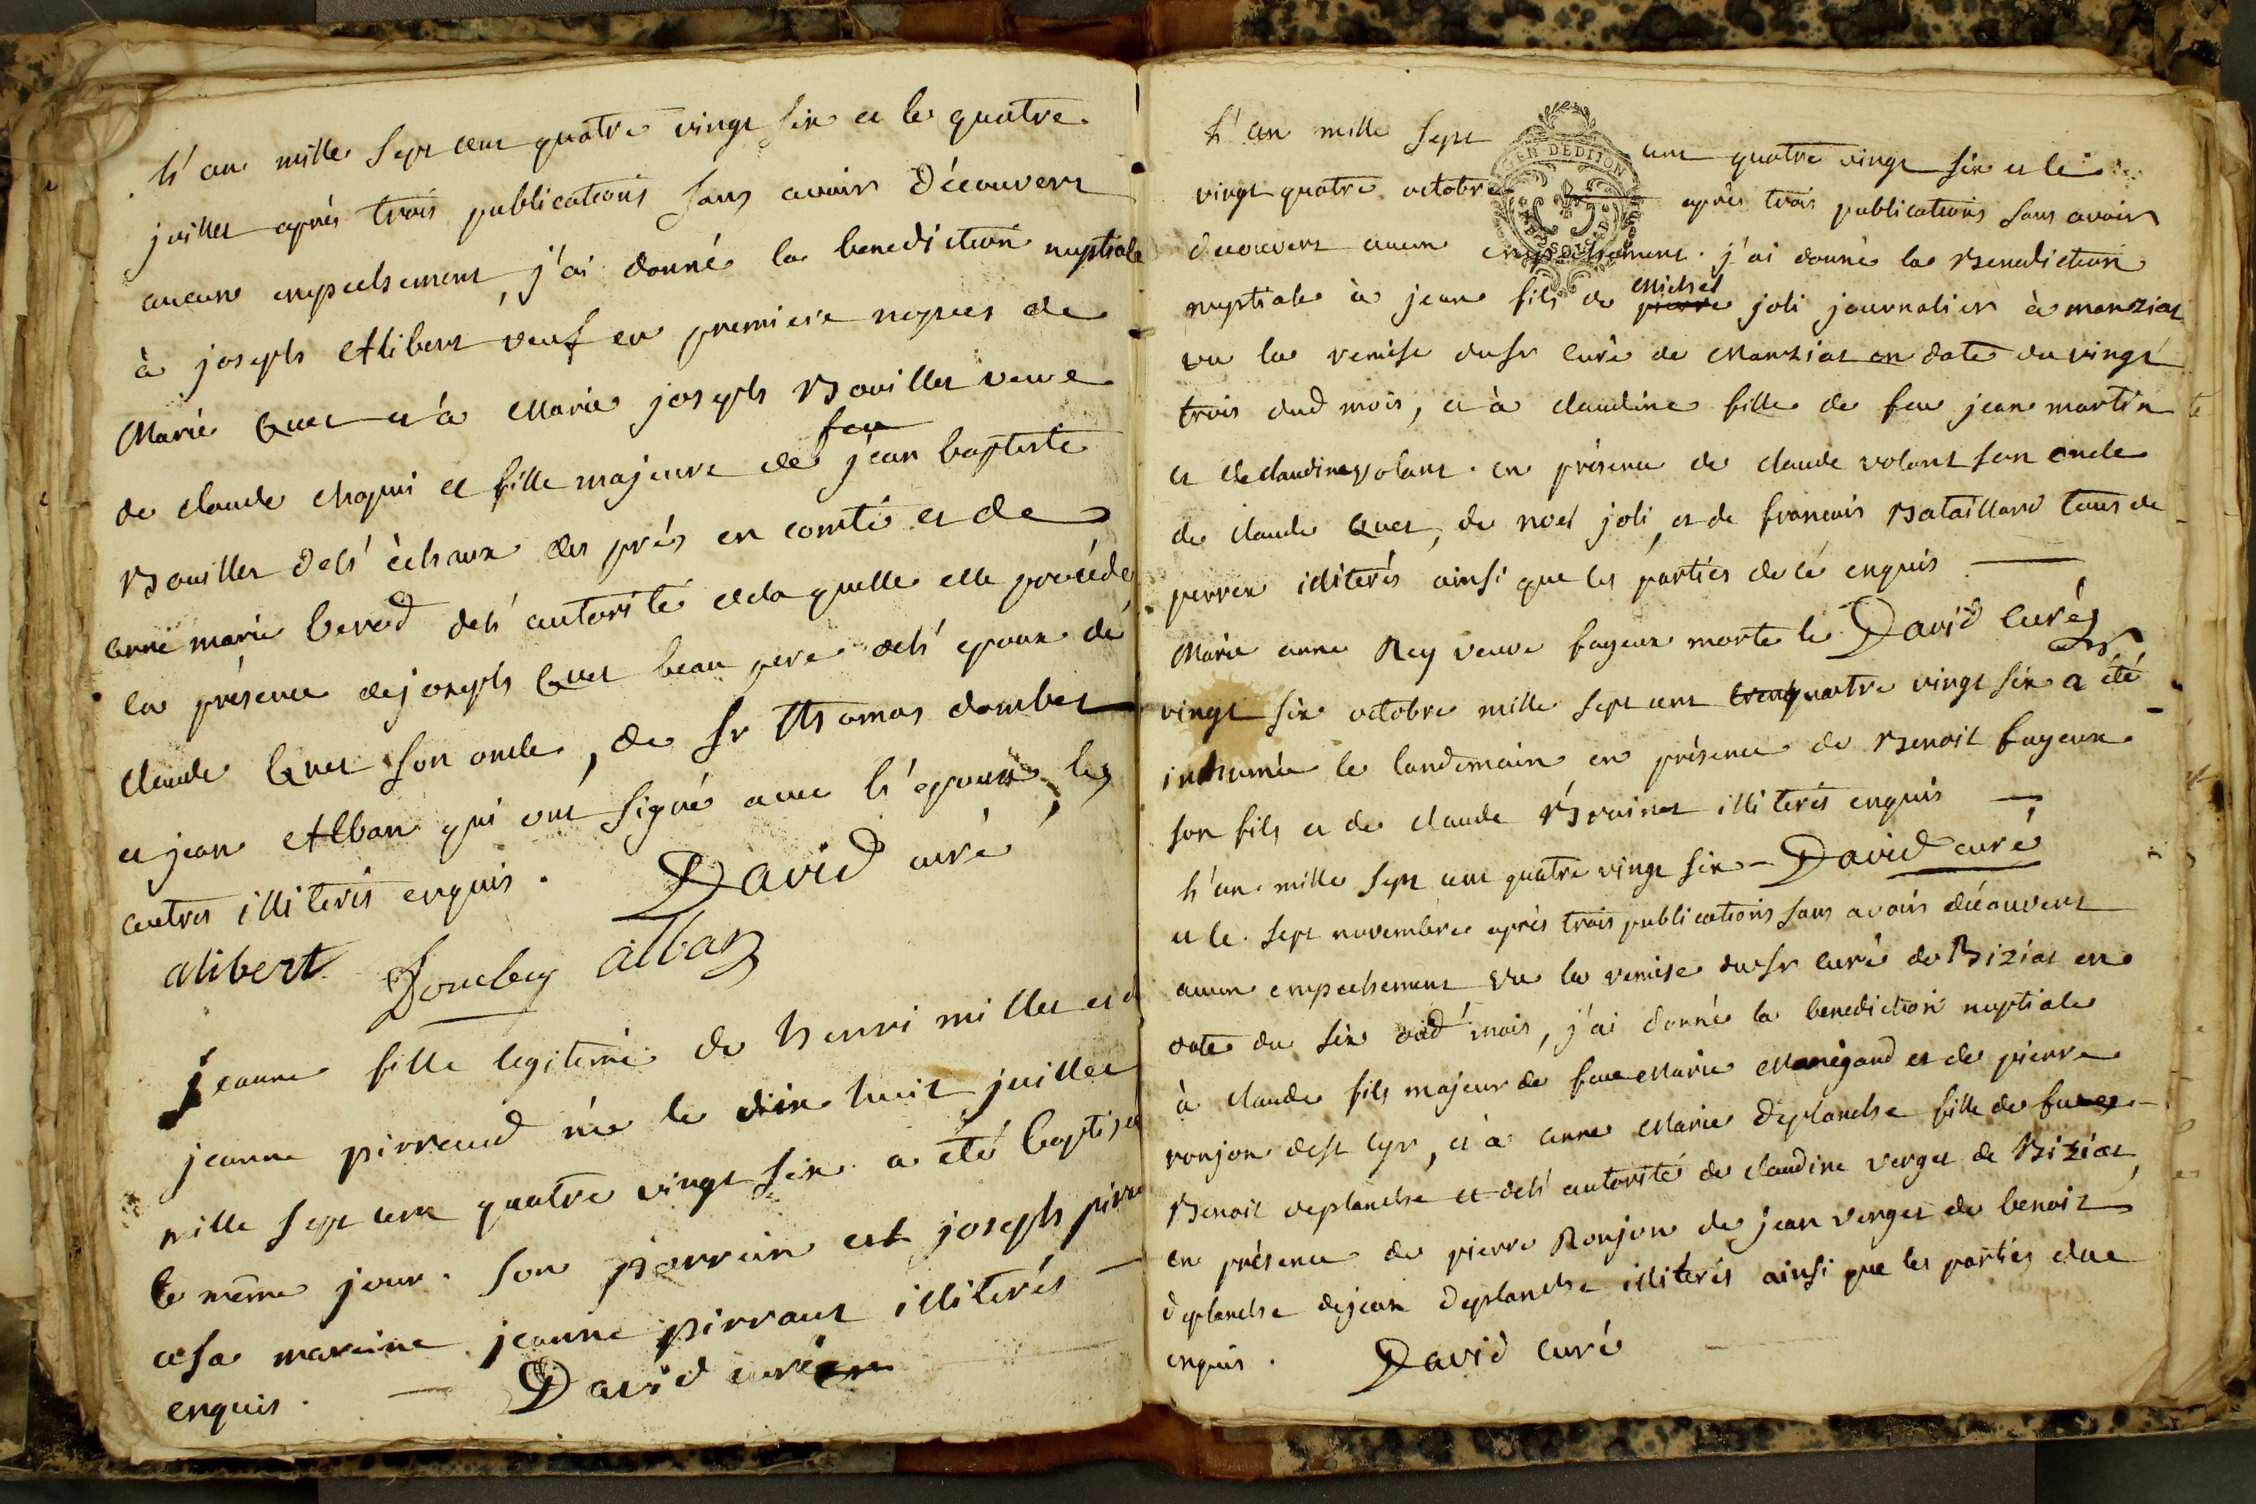 L'an mille sept cent quatre vingt six et le quatre
juillet après trois publications sans avoir découvert
aucun empechement, j'ai donné la benediction nuptiale
à joseph Alibert veuf en premiere nopces de
Marie Quet et à Marie joseph Bouillet veuve
de claude chapui et fille majeure de feu jean baptiste
Bouillet del' échaux des prés en comté et de
anne marie berod del' autorité de la quelle elle procéde
en présence de joseph Quet beau pere del' epoux de
claude Quet son oncle, de sr thomas dombet
et jean Alban qui ont signé avec l'epoux, les
autres illiterés enquis. David curé
alibert Dombey alban
jeanne fille legitime de henri millet et d
jeanne pirraud née le dix huit juillet
mille sept cent quatre vingt six a été baptisée
le même jour. son parrain est joseph pirra
et sa maraine jeanne pirraut illiterés
enquis. David curé
L'an mille sept cent quatre vingt six et le
vingt quatre octobre après trois publications sans avoir
decouvert aucun empechement. j'ai donné la Benediction
nuptiale à jean fils de pierre Michel joli journalier à manziat
vu la remise du sr curé de Manziat en date du vingt
trois dud mois, et à claudine fille de feu jean martin
et de claudine volant. en présence de claude volant son oncle
de claude Quet, de noel joli, et de francois Bataillard tous de
perrex illiterés ainsi que les parties de ce enquis
Marie anne Rey veuve fayeux morte le David Curé
vingt six octobre mille sept cent quatre vingt six a été
inhumée le landemain en présence de Benoit fayeux
son fils et de claude Brainet illiterés enquis
L'an mille sept cent quatre vingt six David curé
et le sept novembre après trois publications sans avoir découvert
aucun empechement vu la remise du sr curé de Biziat en
date du six dud mois, j'ai donné la benediction nuptiale
à claude fils majeur de feue Marie Manégaud et de pierre
ronjon de st Cyr, et à anne Marie deplanche fille de feu
Benoit deplanche et del' autorité de claudine verget de Biziat,
en présence de pierre Ronjon de jean verget de benoit
deplanche de jean deplanche illiterés ainsi que les parties de ce
enquis. David curé
GEN DEDIJON